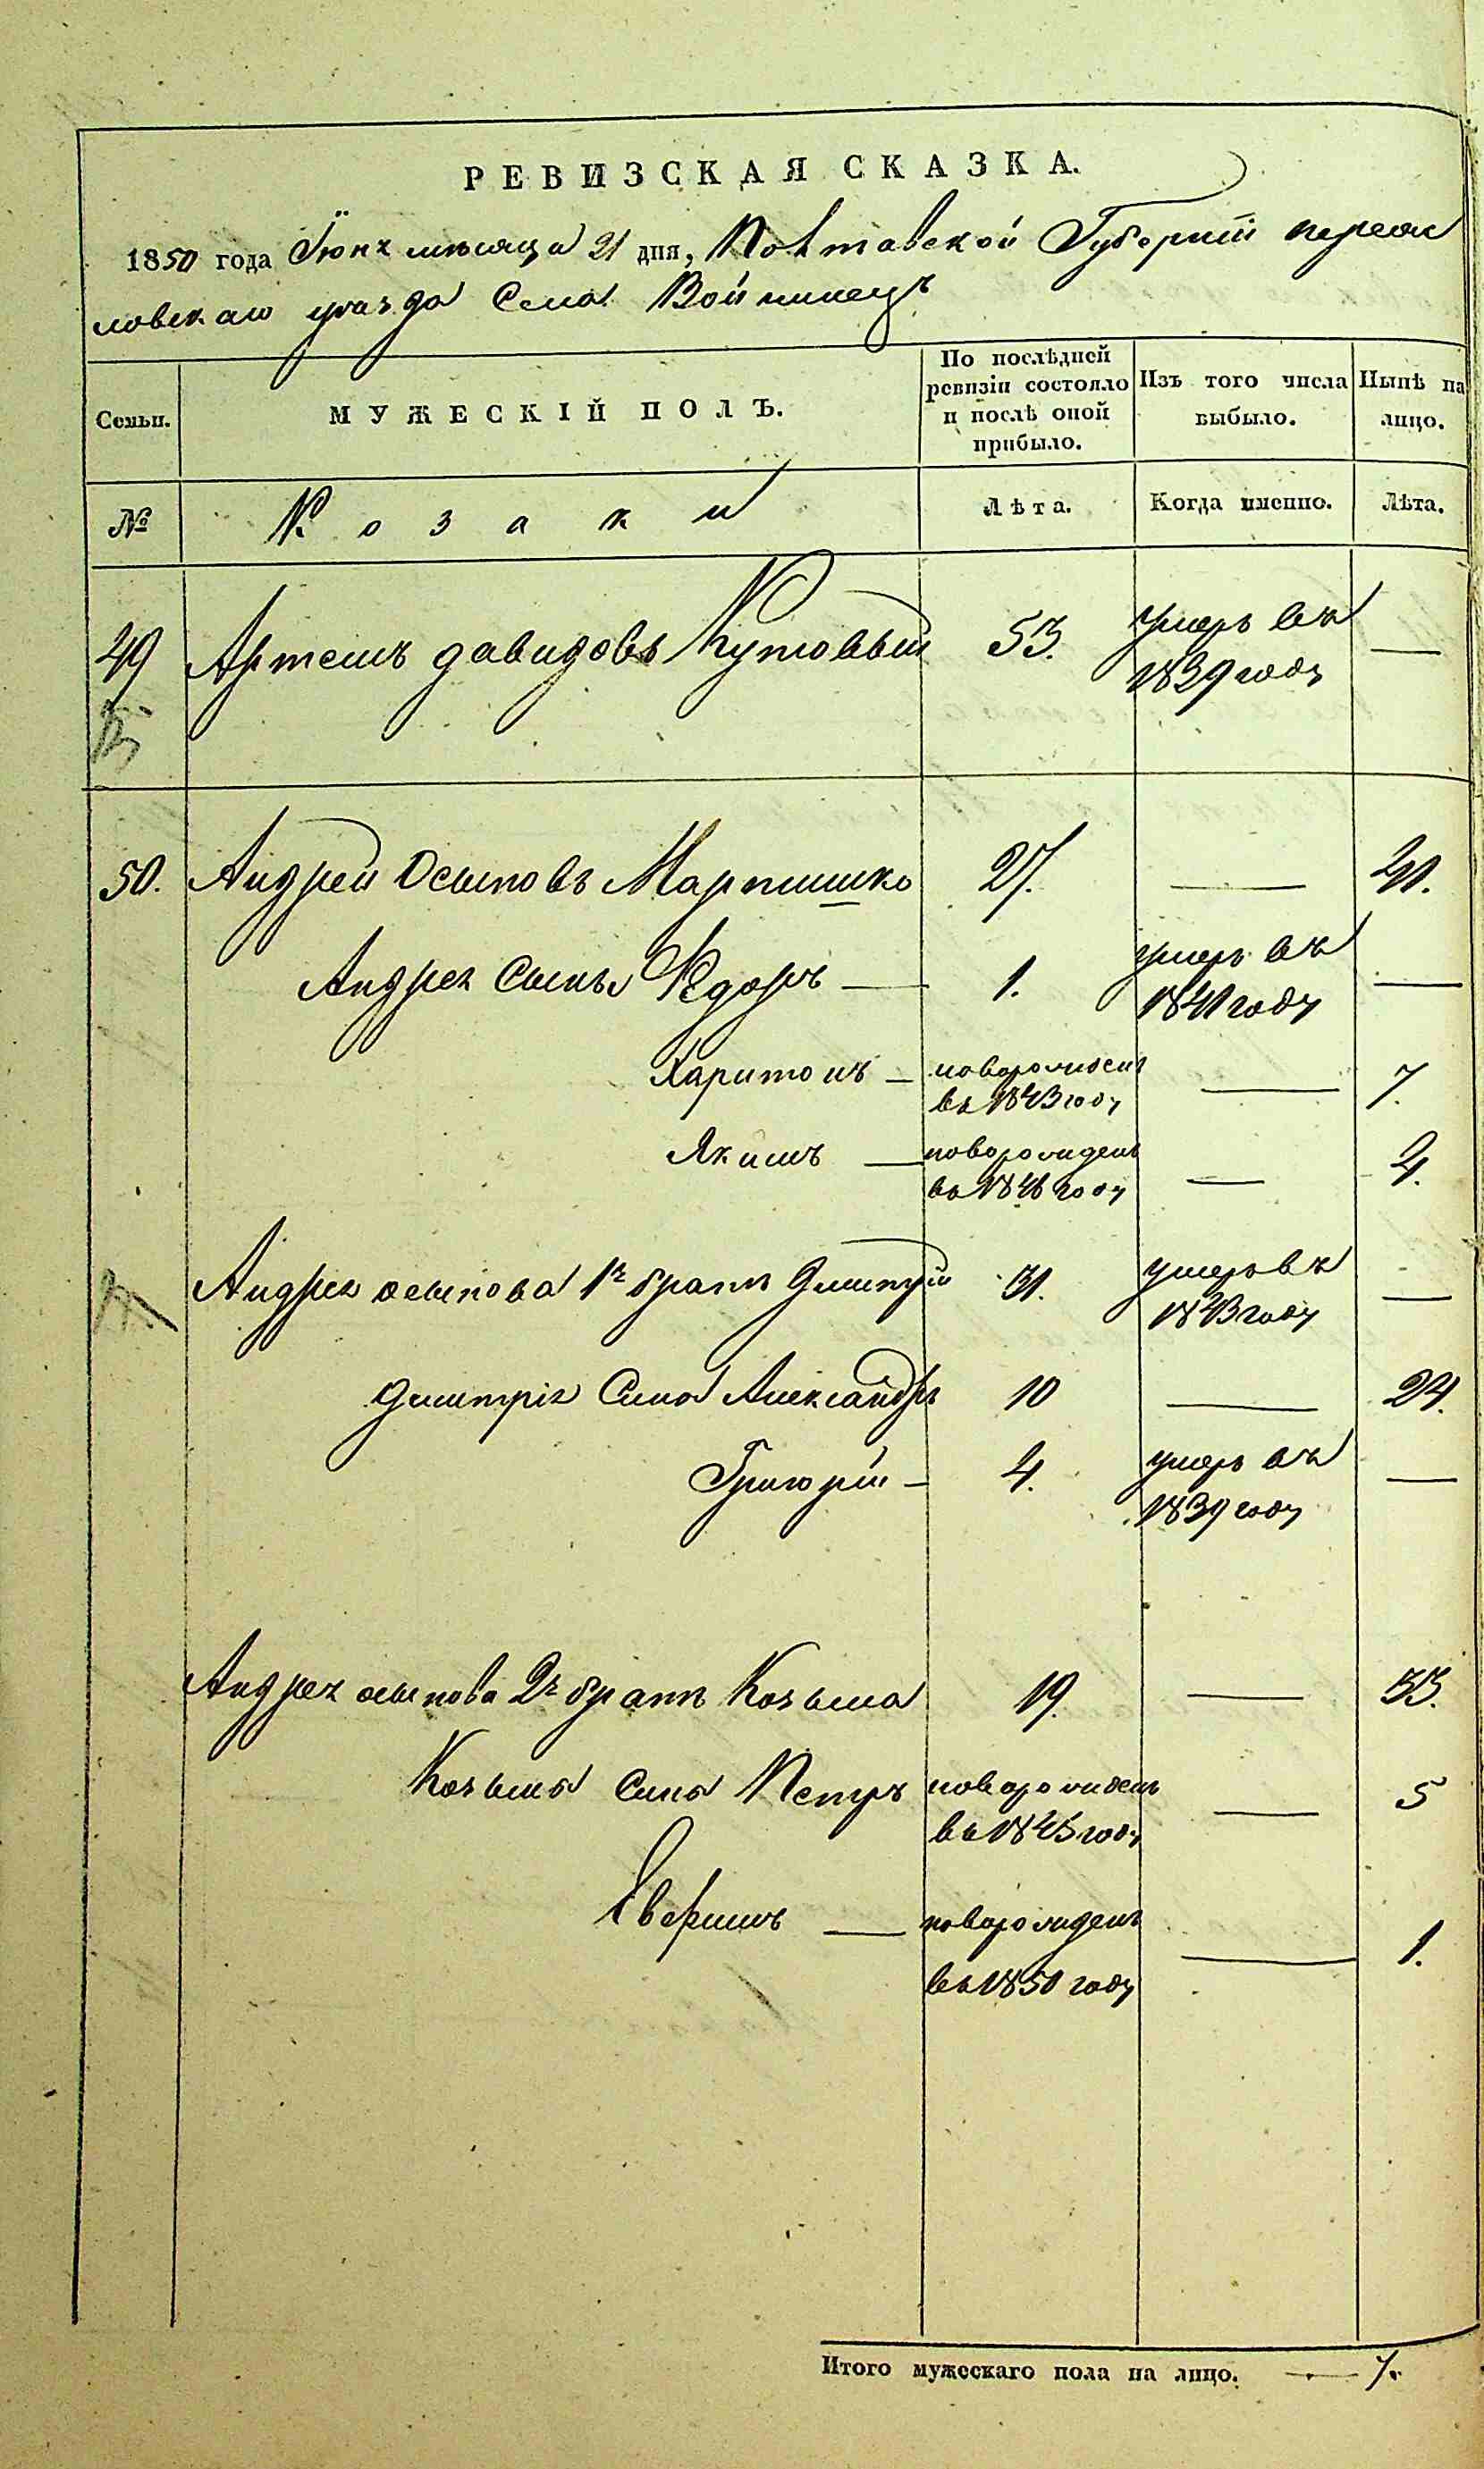 РЕВИЗСКАЯ СКАЗКА.
1850 года Іюня мѣсяца 21 дня, Полтавской Губерніи переяс
ловскаго уезда Села Войнинецъ
Семьи.
МУЖЕСКІЙ ПОЛЪ.
По послѣдней ревизіи состояло и послѣ оной прибыло.
Изъ того числа выбыло.
Нынѣ на лицо.
№
Козаки
Лѣта.
Когда именно.
Лѣта.
49 Артемъ давидовъ Кутовый 53. умеръ въ —
1839 году
50. Андрей Осиповъ Мартишко 27. — 41.
Андрея Сынъ Федоръ — 1. умеръ въ —
1841 году
Харитонъ — новорожденъ — 7.
въ 1843 году
Якимъ — новорожденъ — 4.
въ 1846 году
Андрея осипова 1й братъ Дмитрій 31. умеръ въ —
1843 году
Дмитрія Сына Александръ 10 — 24.
Григорій — 4. умеръ въ —
1839 году
Андрея осипова 2й братъ Козьма 19. — 33.
Козьмы Сына Петръ новорожденъ — 5
въ 1845 году
— новорожденъ — 1.
въ 1850 году
Итого мужескаго пола на лицо. — 7.